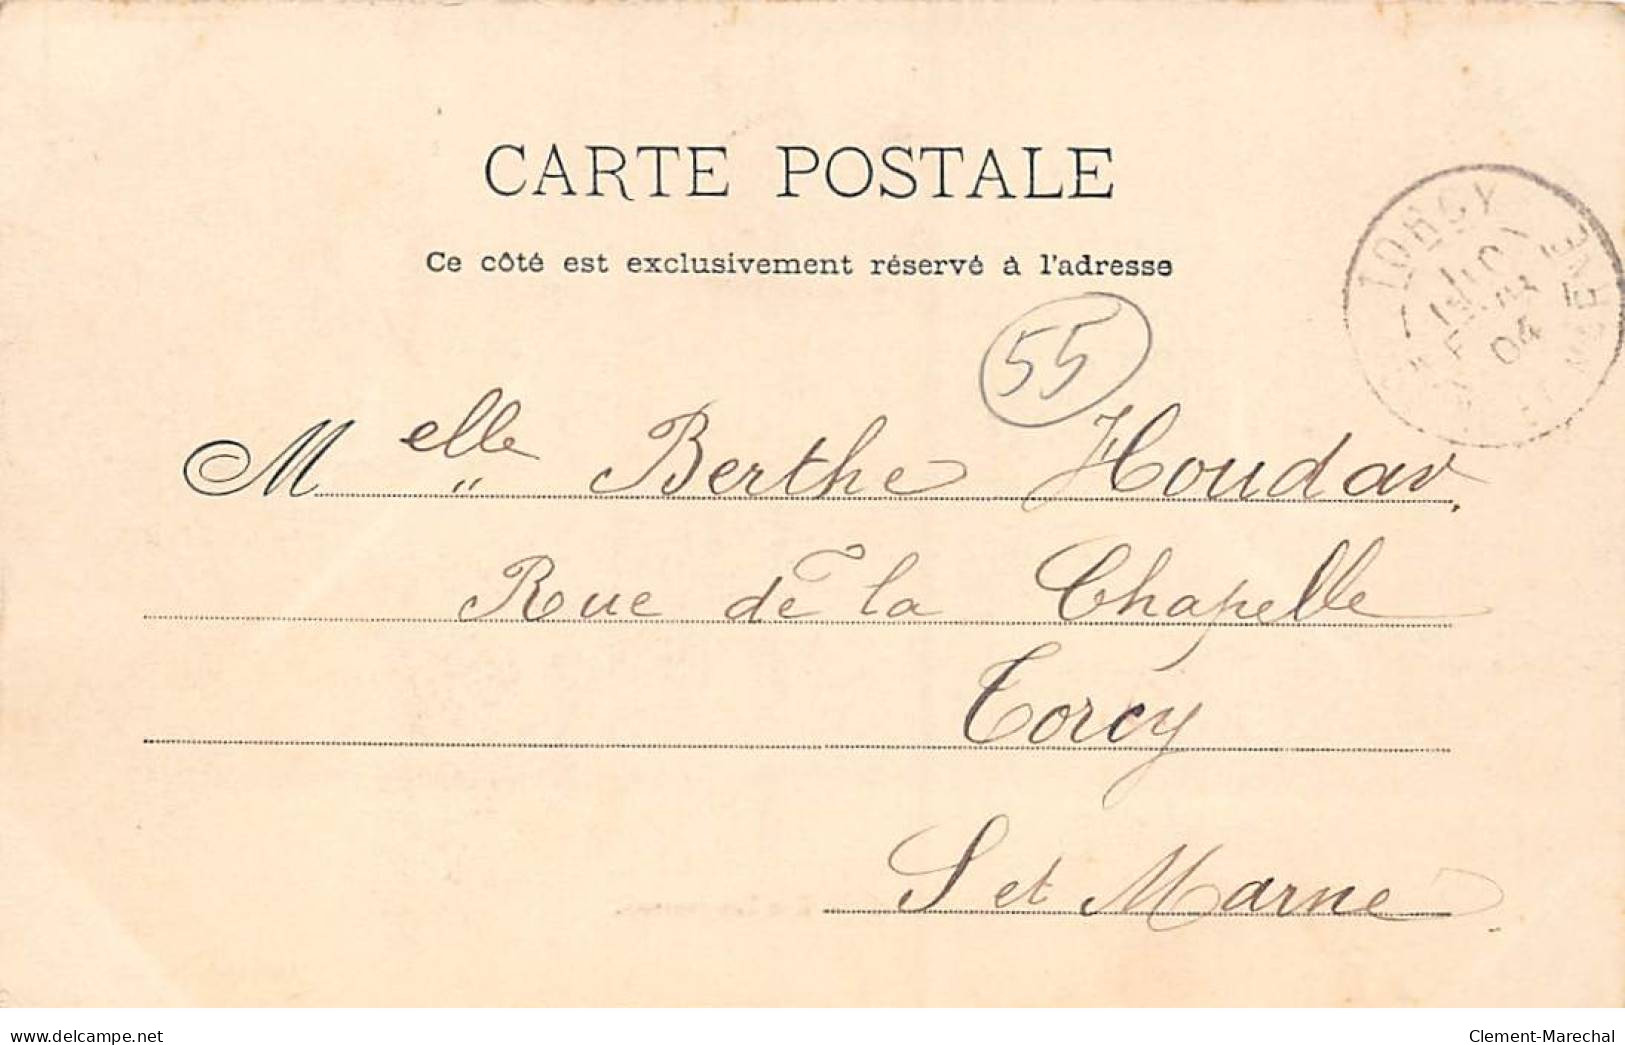 CARTE POSTALE
Ce côté est exclusivement réservé à l'adresse
TORCY
04
ET MARNE
55
Melle Berthe Houdar,
Rue de la Chapelle
Torcy
S et Marne
www.delcampe.net
Clement-Marechal